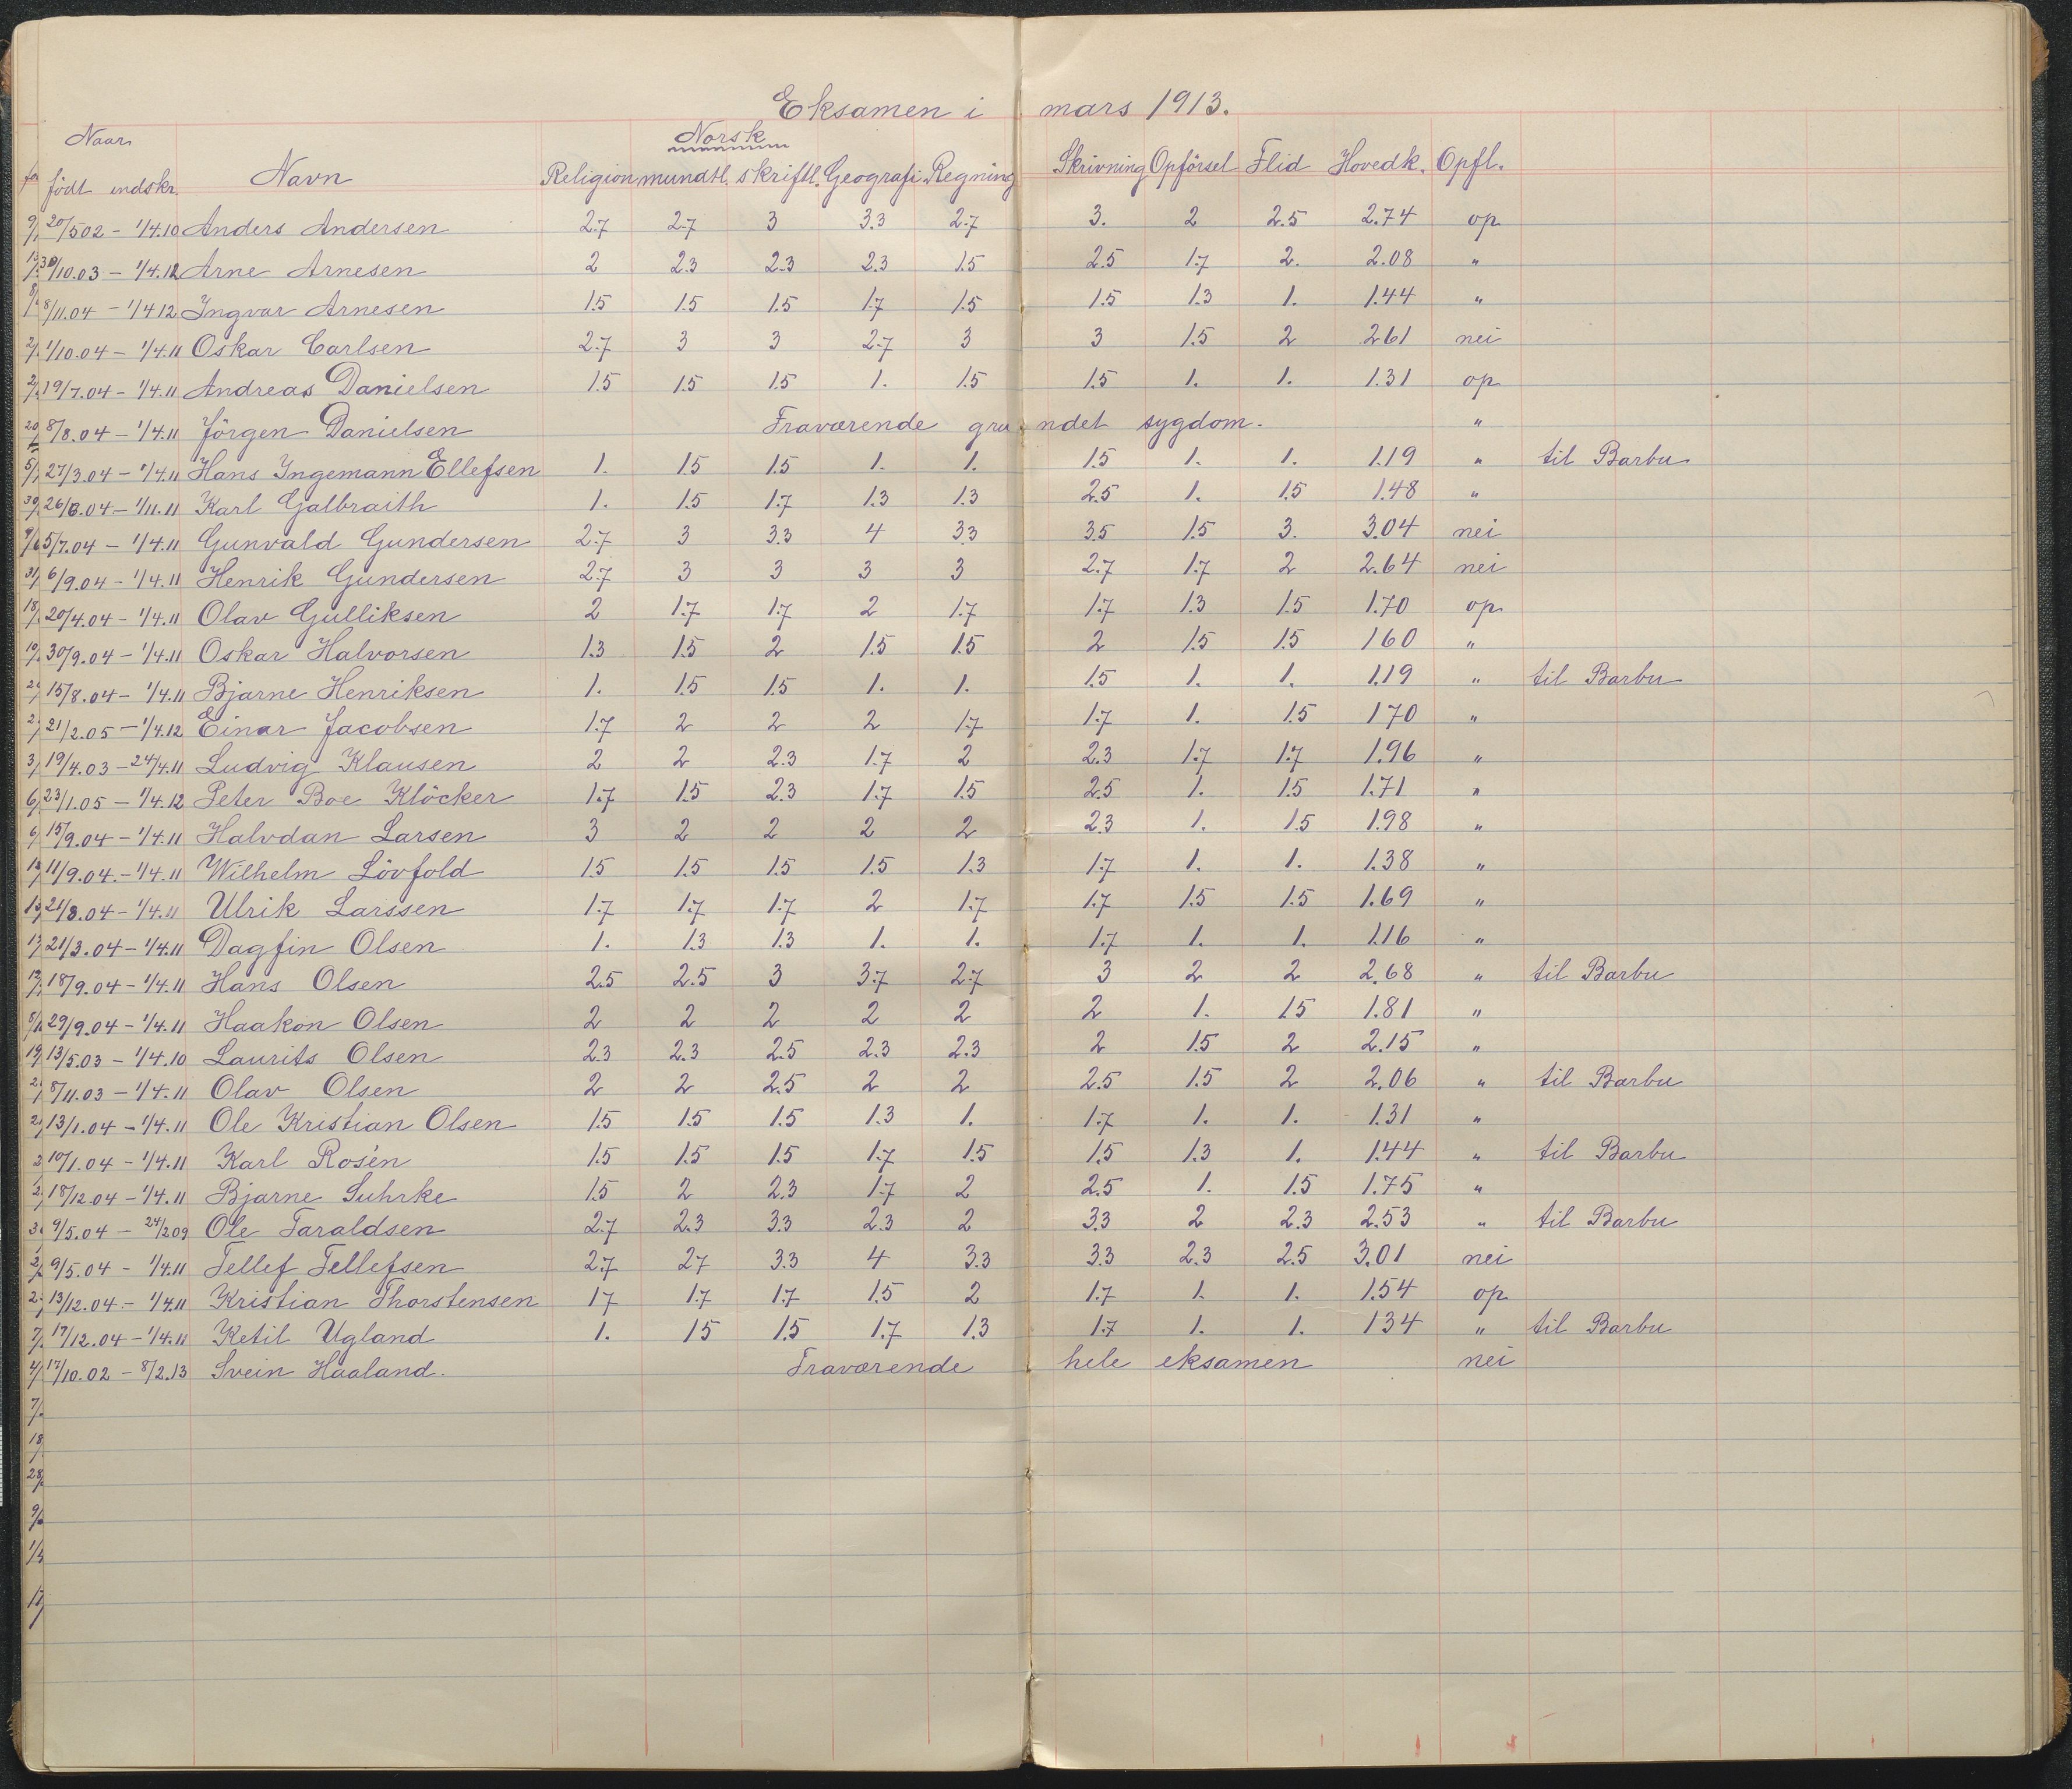 Eksamen i mars 1913.
Naar
Norsk
født indskr. Navn Religion mundtl. skriftl. Geografi Regning Skrivning Opförsel Flid Hovedk. Opfl.
20/5 02 - 1/4.10 Anders Andersen 2.7 2.7 3 3.3 2.7 3. 2 2.5 2.74 op
30/10.03 - 1/4.12 Arne Arnesen 2 2.3 2.3 2.3 1.5 2.5 1.7 2. 2.08 "
8/11.04 - 1/4 12 Ingvar Arnesen 1.5 1.5 1.5 1.7 1.5 1.5 1.3 1. 1.44 "
1/10.04 - 1/4.11 Oskar Carlsen 2.7 3 3 2.7 3 3 1.5 2 2.61 nei
19/7.04 - 1/4.11 Andreas Danielsen 1.5 1.5 1.5 1. 1.5 1.5 1. 1. 1.31 op
8/8.04 - 1/4.11 Jörgen Danielsen Fraværende grundet sygdom. "
27/3.04 - 1/4.11 Hans Ingemann Ellefsen 1. 1.5 1.5 1. 1. 1.5 1. 1. 1.19 " til Barbu
26/6.04 - 1/11.11 Karl Galbraith 1. 1.5 1.7 1.3 1.3 2.5 1. 1.5 1.48 "
5/7.04 - 1/4.11 Gunvald Gundersen 2.7 3 3.3 4 3.3 3.5 1.5 3. 3.04 nei
6/9.04 - 1/4.11 Henrik Gundersen 2.7 3 3 3 3 2.7 1.7 2 2.64 nei
20/4.04 - 1/4.11 Olav Gulliksen 2 1.7 1.7 2 1.7 1.7 1.3 1.5 1.70 op
30/9.04 - 1/4.11 Oskar Halvorsen 1.3 1.5 2 1.5 1.5 2 1.5 1.5 1 60 "
15/8.04 - 1/4.11 Bjarne Henriksen 1. 1.5 1.5 1. 1. 1.5 1. 1. 1.19 " til Barbu
21/2.05 - 1/4.12 Einar Jacobsen 1.7 2 2 2 1.7 1.7 1. 1.5 1 70 "
19/4.03 - 24/4.11 Ludvig Klausen 2 2 2.3 1.7 2 2.3 1.7 1.7 1.96 "
23/1.05 - 1/4.12 Peter Boe Klöcker 1.7 1.5 2.3 1.7 1.5 2.5 1. 1.5 1.71 "
15/9.04 - 1/4.11 Halvdan Larsen 3 2 2 2 2 2.3 1. 1.5 1.98 "
11/9.04. - 1/4.11 Wilhelm Lövfold 1.5 1.5 1.5 1.5 1.3 1.7 1. 1. 1.38 "
21/8.04 - 1/4.11 Ulrik Larssen 1.7 1.7 1.7 2 1.7 1.7 1.5 1.5 1.69 "
21/3.04 - 1/4.11 Dagfin Olsen 1. 1.3 1.3 1. 1. 1.7 1. 1. 1.16 "
18/9.04 - 1/4.11 Hans Olsen 2.5 2.5 3 3.7 2.7 3 2 2 2.68 " til Barbu
29/9.04 - 1/4.11 Haakon Olsen 2 2 2 2 2 2 1. 1.5 1.81 "
13/5.03 - 1/4.10 Laurits Olsen 2.3 2.3 2.5 2.3 2.3 2 1.5 2 2.15 "
8/11.03 - 1/4.11 Olav Olsen 2 2 2.5 2 2 2.5 1.5 2 2.06 " til Barbu
13/1.04 - 1/4.11 Ole Kristian Olsen 1.5 1.5 1.5 1.3 1. 1.7 1. 1. 1.31 "
10/1.04 - 1/4.11 Karl Rosén 1.5 1.5 1.5 1.7 1.5 1.5 1.3 1. 1.44 " til Barbu
18/12.04 - 1/4.11 Bjarne Suhrke 1.5 2 2.3 1.7 2 2.5 1. 1.5 1.75 "
9/5.04 - 24/2 09 Ole Taraldsen 2.7 2.3 3.3 2.3 2 3.3 2 2.3 2.53 " til Barbu
9/5.04 - 1/4.11 Tellef Tellefsen 2.7 2.7 3.3 4 3.3 3.3 2.3 2.5 3.01 nei
13/12.04 - 1/4.11 Kristian Thorstensen 1.7 1.7 1.7 1.5 2 1.7 1. 1. 1.54 op
17/12.04 - 1/4.11 Ketil Ugland 1. 1.5 1.5 1.7 1.3 1.7 1. 1. 1 34 " til Barbu
17/10.02 - 8/2.13 Svein Haaland. Fraværende hele eksamen nei